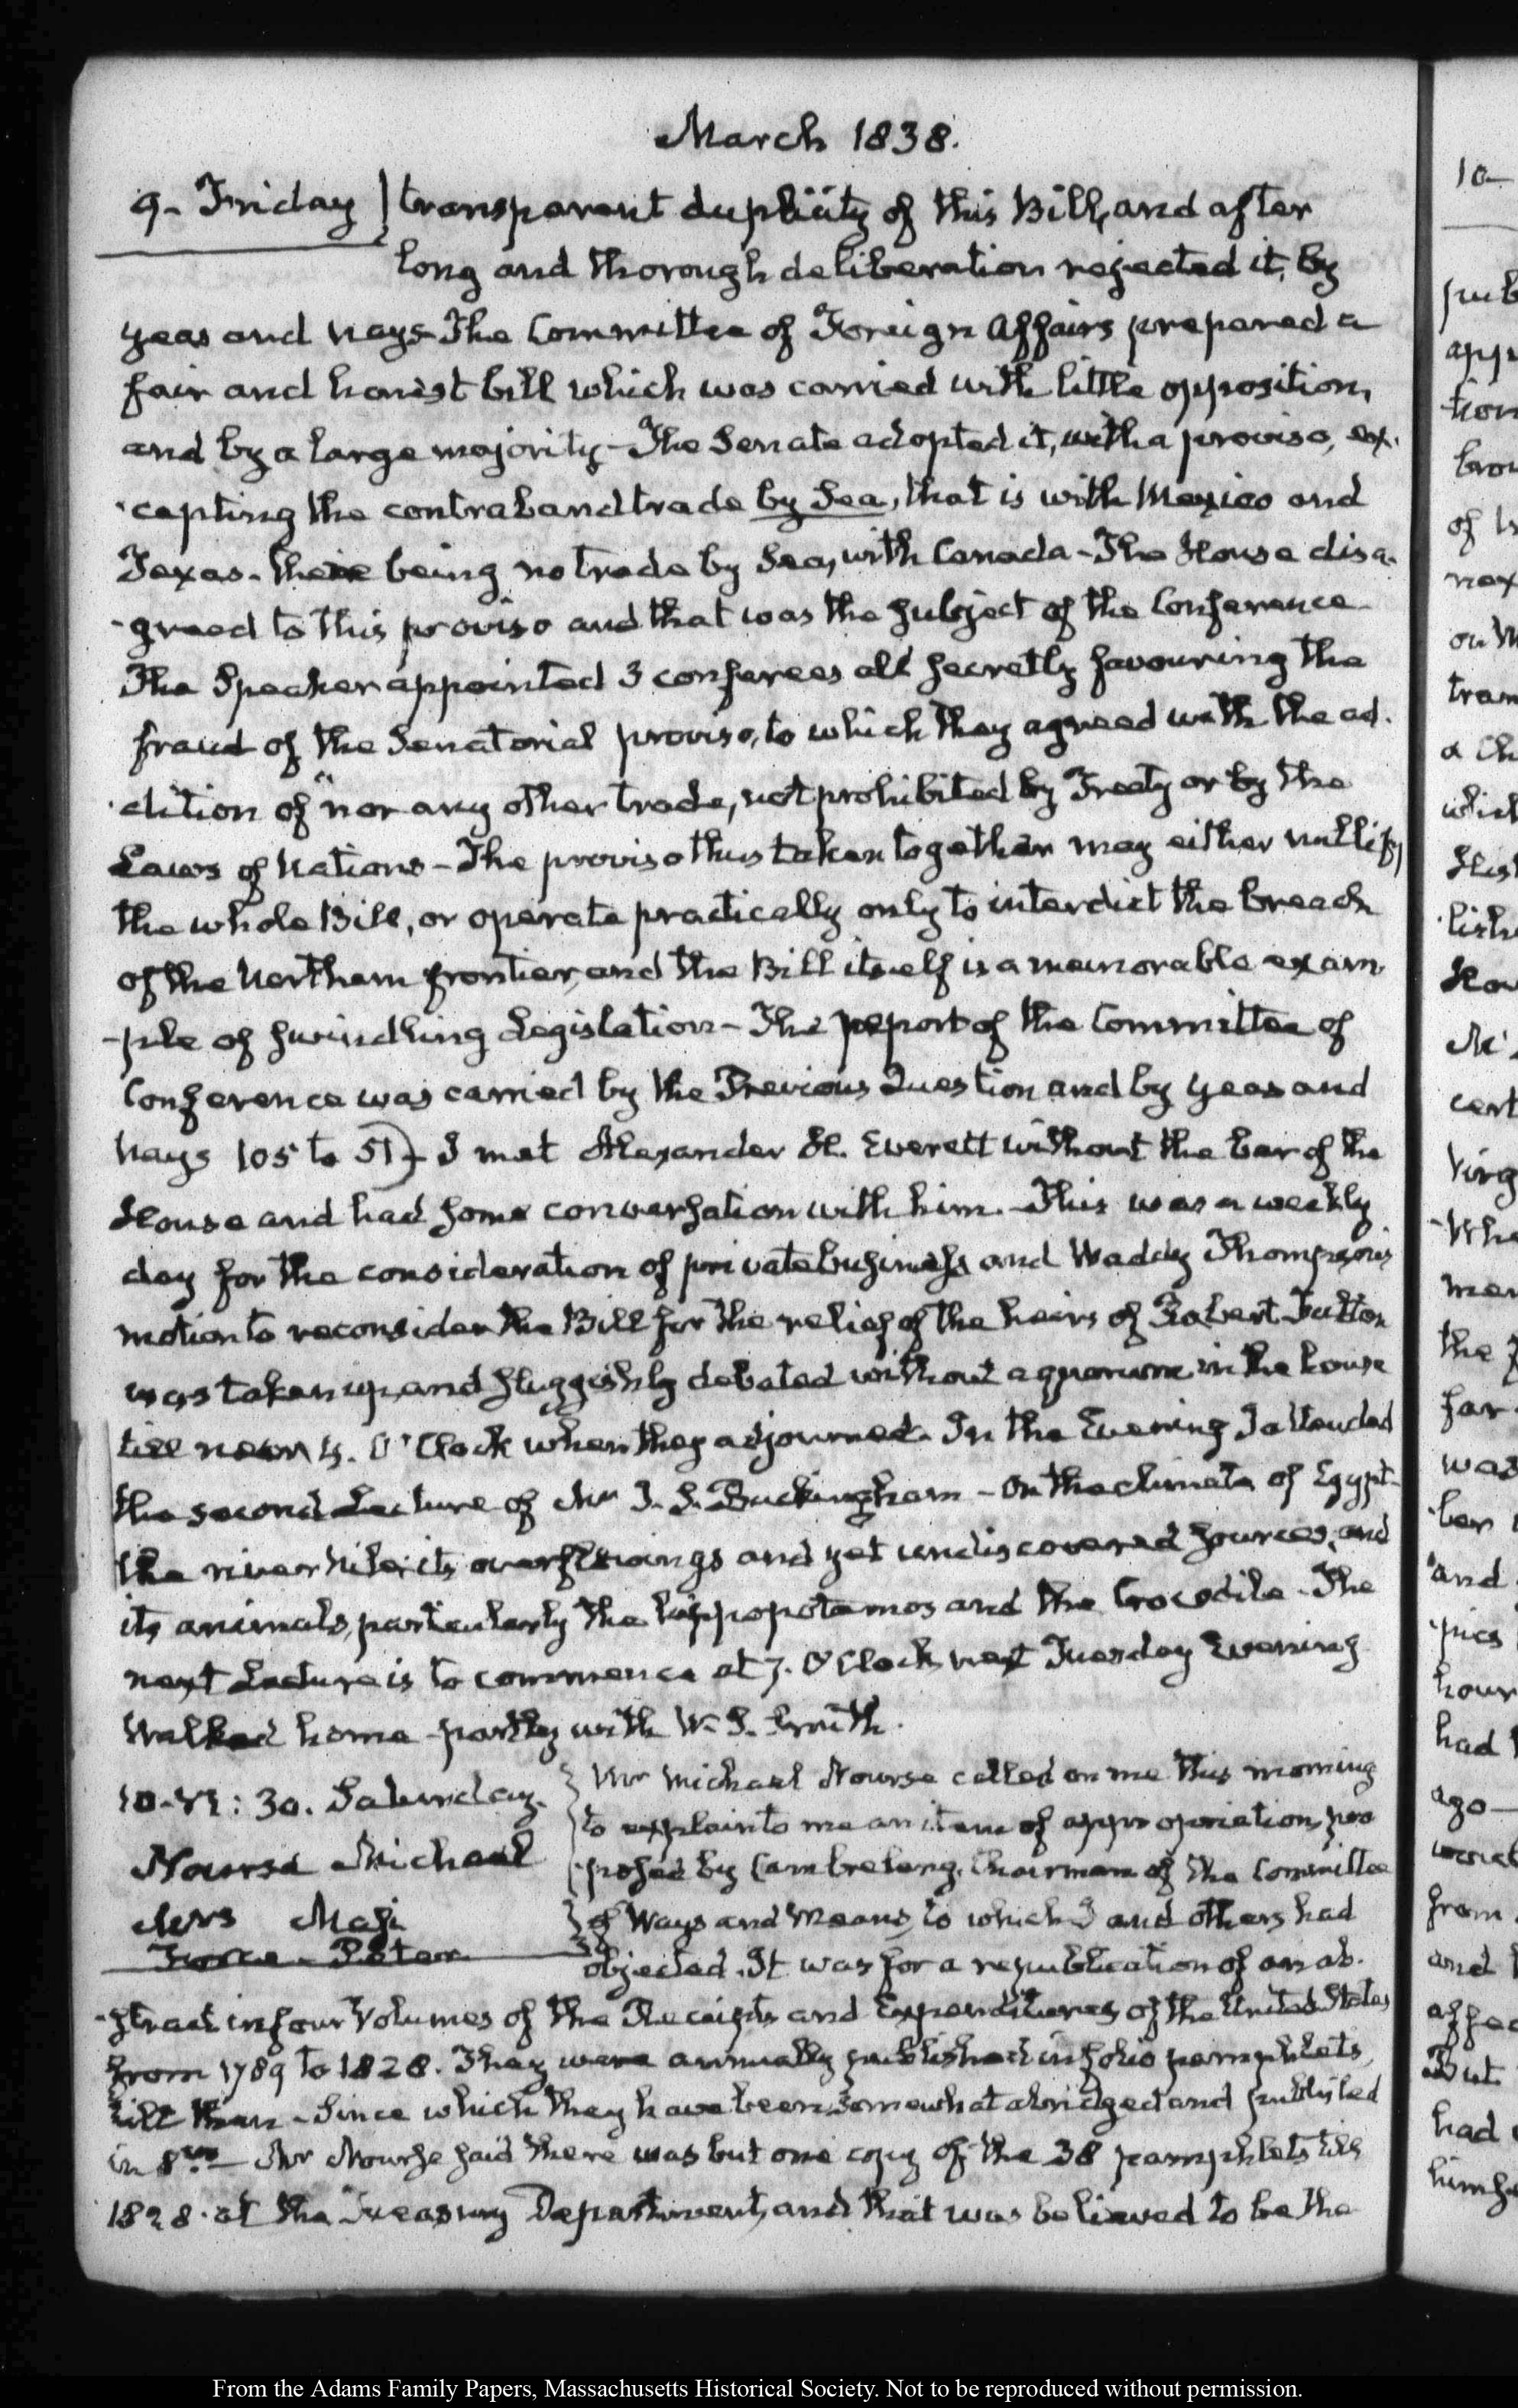 March 1838.
9- Friday } transparent duplicity of this Bill, and after
long and thorough deliberation rejected it, by
yeas and nays- The Committee of Foreign Affairs prepared a
fair and honest bill which was carried with little opposition,
and by a large majority- The Senate adopted it, with a proviso, ex-
-cepting the contraband trade by Sea, that is with Mexico and
Texas- there being no trade by Sea, with Canada- The House disa-
-greed to this proviso and that was the subject of the Conference-
The Speaker appointed 3 conferees all secretly favouring the
fraud of the Senatorial proviso, to which they agreed with the ad-
-dition of "nor any other trade, not prohibited by Treaty or by the
Laws of Nations- The proviso thus taken together may either nullify
the whole Bill, or operate practically only to interdict the breach
of the Northern frontier, and the Bill itself is a memorable exam-
-ple of swindling Legislation- The report of the Committee of
Conference was carried by the Previous Question and by yeas and
nays 105 to 51)- I met Alexander H. Everett without the bar of the
House and had some conversation with him.- This was a weekly
day for the consideration of private business and Waddy Thompson's
motion to reconsider the Bill for the relief of the heirs of Robert Fulton
was taken up, and sluggishly debated without a quorum in the house
till near 4. O'Clock when they adjourned. In the Evening I attended
the second Lecture of Mr J. S. Buckingham- On the climate of Egypt-
the river Nile, its overflowings and yet undiscovered sources, and
its animals, particularly the hippopotamos and the Crocodile- The
next Lecture is to commence at 7. O'Clock next Tuesday Evening
Walked home partly with W. S. Smith.
10- VI: 30. Saturday. } Mr Michael Nourse called on me this morning
to explain to me an item of appropriation, pro
Nourse Michael
-posed by Cambreleng, Chairman of the Committee
Mrs Masi
of Ways and Means, to which I and others had
Force- Peter
objected. It was for a republication of an ab-
-stract in four Volumes of the Receipts and Expenditures of the United States
from 1789 to 1828. They were annually published in folio pamphlets,
till then- Since which they have been somewhat abridged and published
in 8vo- Mr Nourse said there was but one copy of the 38 pamphlets till
1828. at the Treasury Department, and that was believed to be the
10-
pub
app
tion
brou
of
nex
on
tran
a
whic
His
lish
Hou
Mr
cert
Virg
Whe
men
the
for
was
ber
and
pics
hour
had
ago-
from
and
affec
But
had
himse
From the Adams Family Papers, Massachusetts Historical Society. Not to be reproduced without permission.